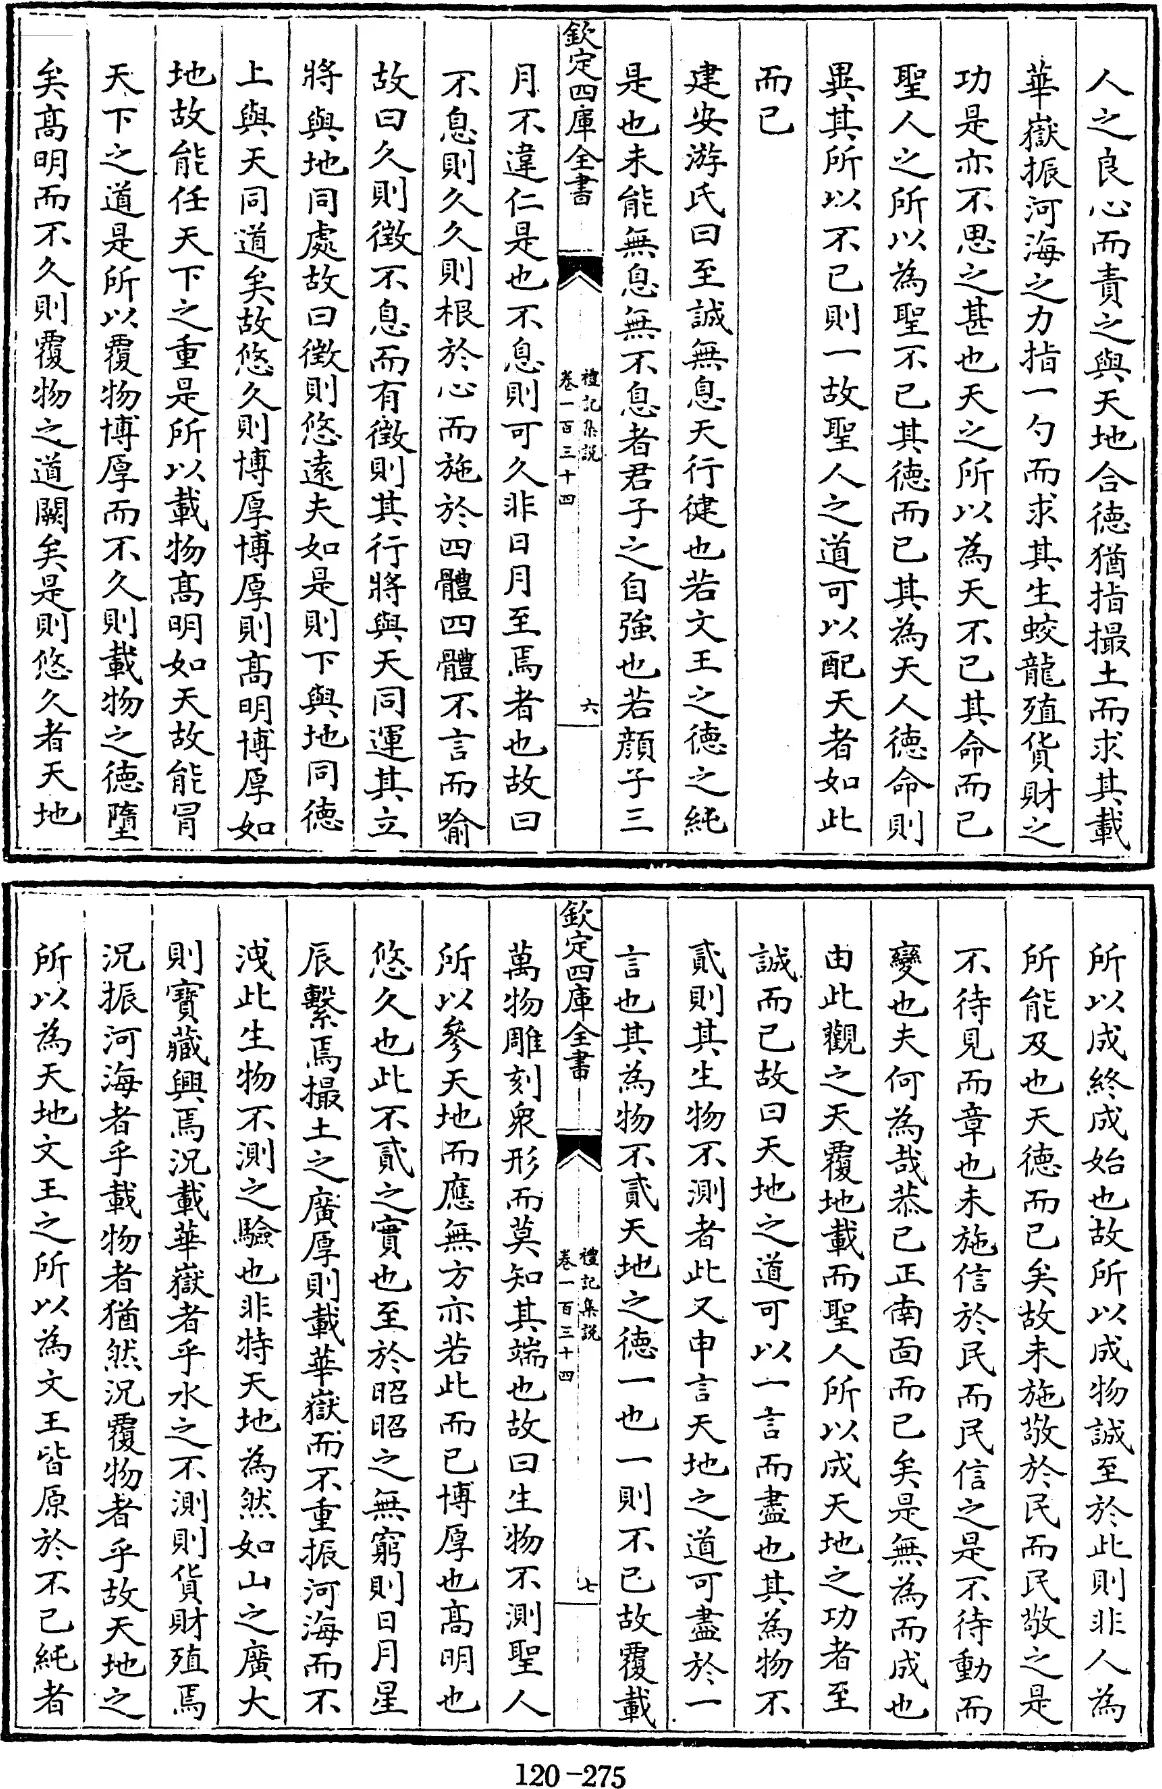 人之良心而責之與天地合德猶指撮土而求其載
華嶽振河海之力指一勺而求其生蛟龍殖貨財之
功是亦不思之甚也天之所以為天不已其命而已
聖人之所以為聖不已其德而已其為天人德命則
異其所以不已則一故聖人之道可以配天者如此
而已
建安游氏曰至誠無息天行健也若文王之德之純
是也未能無息無不息者君子之自強也若顔子三
欽定四庫全書
禮記集說
卷一百三十四
六
月不違仁是也不息則可久非日月至焉者也故曰
不息則久久則根於心而施於四體四體不言而喻
故曰久則徴不息而有徴則其行將與天同運其立
將與地同處故曰徴則悠遠夫如是則下與地同德
上與天同道矣故悠久則博厚博厚則髙明博厚如
地故能任天下之重是所以載物髙明如天故能冐
天下之道是所以覆物博厚而不久則載物之德墮
矣髙明而不久則覆物之道闕矣是則悠久者天地
所以成終成始也故所以成物誠至於此則非人為
所能及也天德而已矣故未施敬於民而民敬之是
不待見而章也未施信於民而民信之是不待動而
變也夫何為哉恭已正南面而已矣是無為而成也
由此觀之天覆地載而聖人所以成天地之功者至
誠而已故曰天地之道可以一言而盡也其為物不
貳則其生物不測者此又申言天地之道可盡於一
言也其為物不貳天地之德一也一則不已故覆載
欽定四庫全書
禮記集說
卷一百三十四
七
萬物雕刻衆形而莫知其端也故曰生物不測聖人
所以參天地而應無方亦若此而已博厚也髙明也
悠久也此不貳之實也至於昭昭之無窮則日月星
辰繫焉撮土之廣厚則載華嶽而不重振河海而不
洩此生物不測之驗也非特天地為然如山之廣大
則寶藏興焉況載華嶽者乎水之不測則貨財殖焉
況振河海者乎載物者猶然況覆物者乎故天地之
所以為天地文王之所以為文王皆原於不已純者
120-275